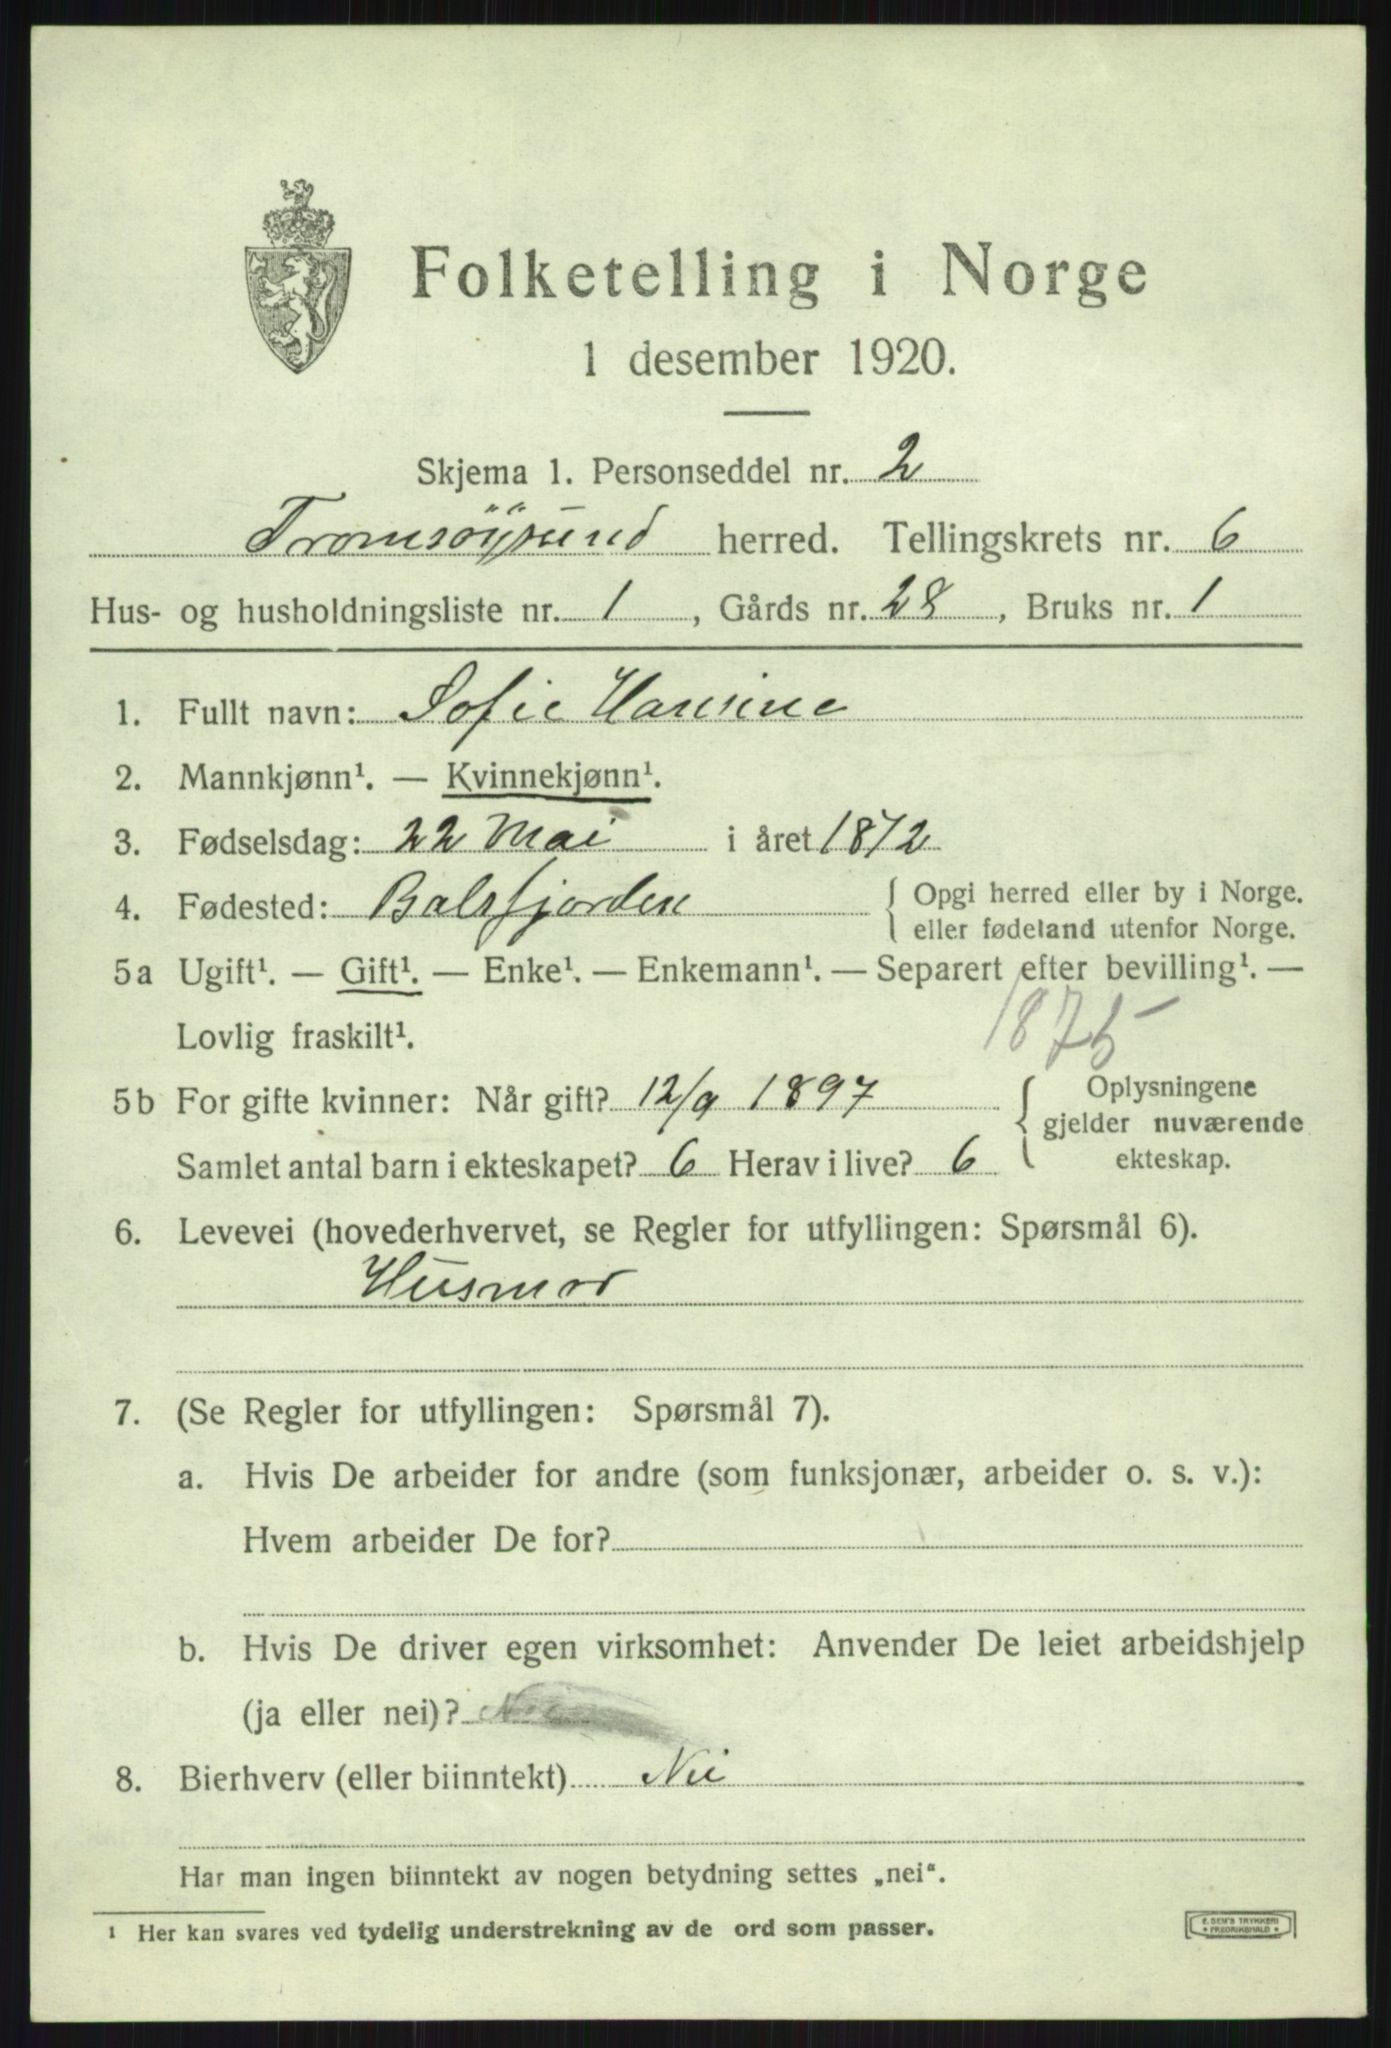 Folketelling i Norge
1 desember 1920.
Skjema 1. Personseddel nr. 2
Tromsöysund herred. Tellingskrets nr. 6
Hus- og husholdningsliste nr. 1, Gårds nr. 28, Bruks nr. 1
1. Fullt navn: Sofie Hansine
2. Mannkjønn¹. — Kvinnekjønn¹.
3. Fødselsdag: 22 Mai i året 1872
4. Fødested: Balsfjorden { Opgi herred eller by i Norge.
eller fødeland utenfor Norge.
5a Ugift¹. — Gift¹. — Enke¹. — Enkemann¹. — Separert efter bevilling¹. —
Lovlig fraskilt¹.
1875
5b For gifte kvinner: Når gift? 12/9 1897 { Oplysningene
gjelder nuværende
Samlet antal barn i ekteskapet? 6 Herav i live? 6 ekteskap.
6. Levevei (hovederhvervet, se Regler for utfyllingen: Spørsmål 6).
Husmor
7. (Se Regler for utfyllingen: Spørsmål 7).
a. Hvis De arbeider for andre (som funksjonær, arbeider o. s. v.):
Hvem arbeider De for?
b. Hvis De driver egen virksomhet: Anvender De leiet arbeidshjelp
(ja eller nei)? Nei
8. Bierhverv (eller biinntekt) Nei
Har man ingen biinntekt av nogen betydning settes „nei“.
¹ Her kan svares ved tydelig understrekning av de ord som passer.
E. SEM'S TRYKKERI
FREDRIKSHALD